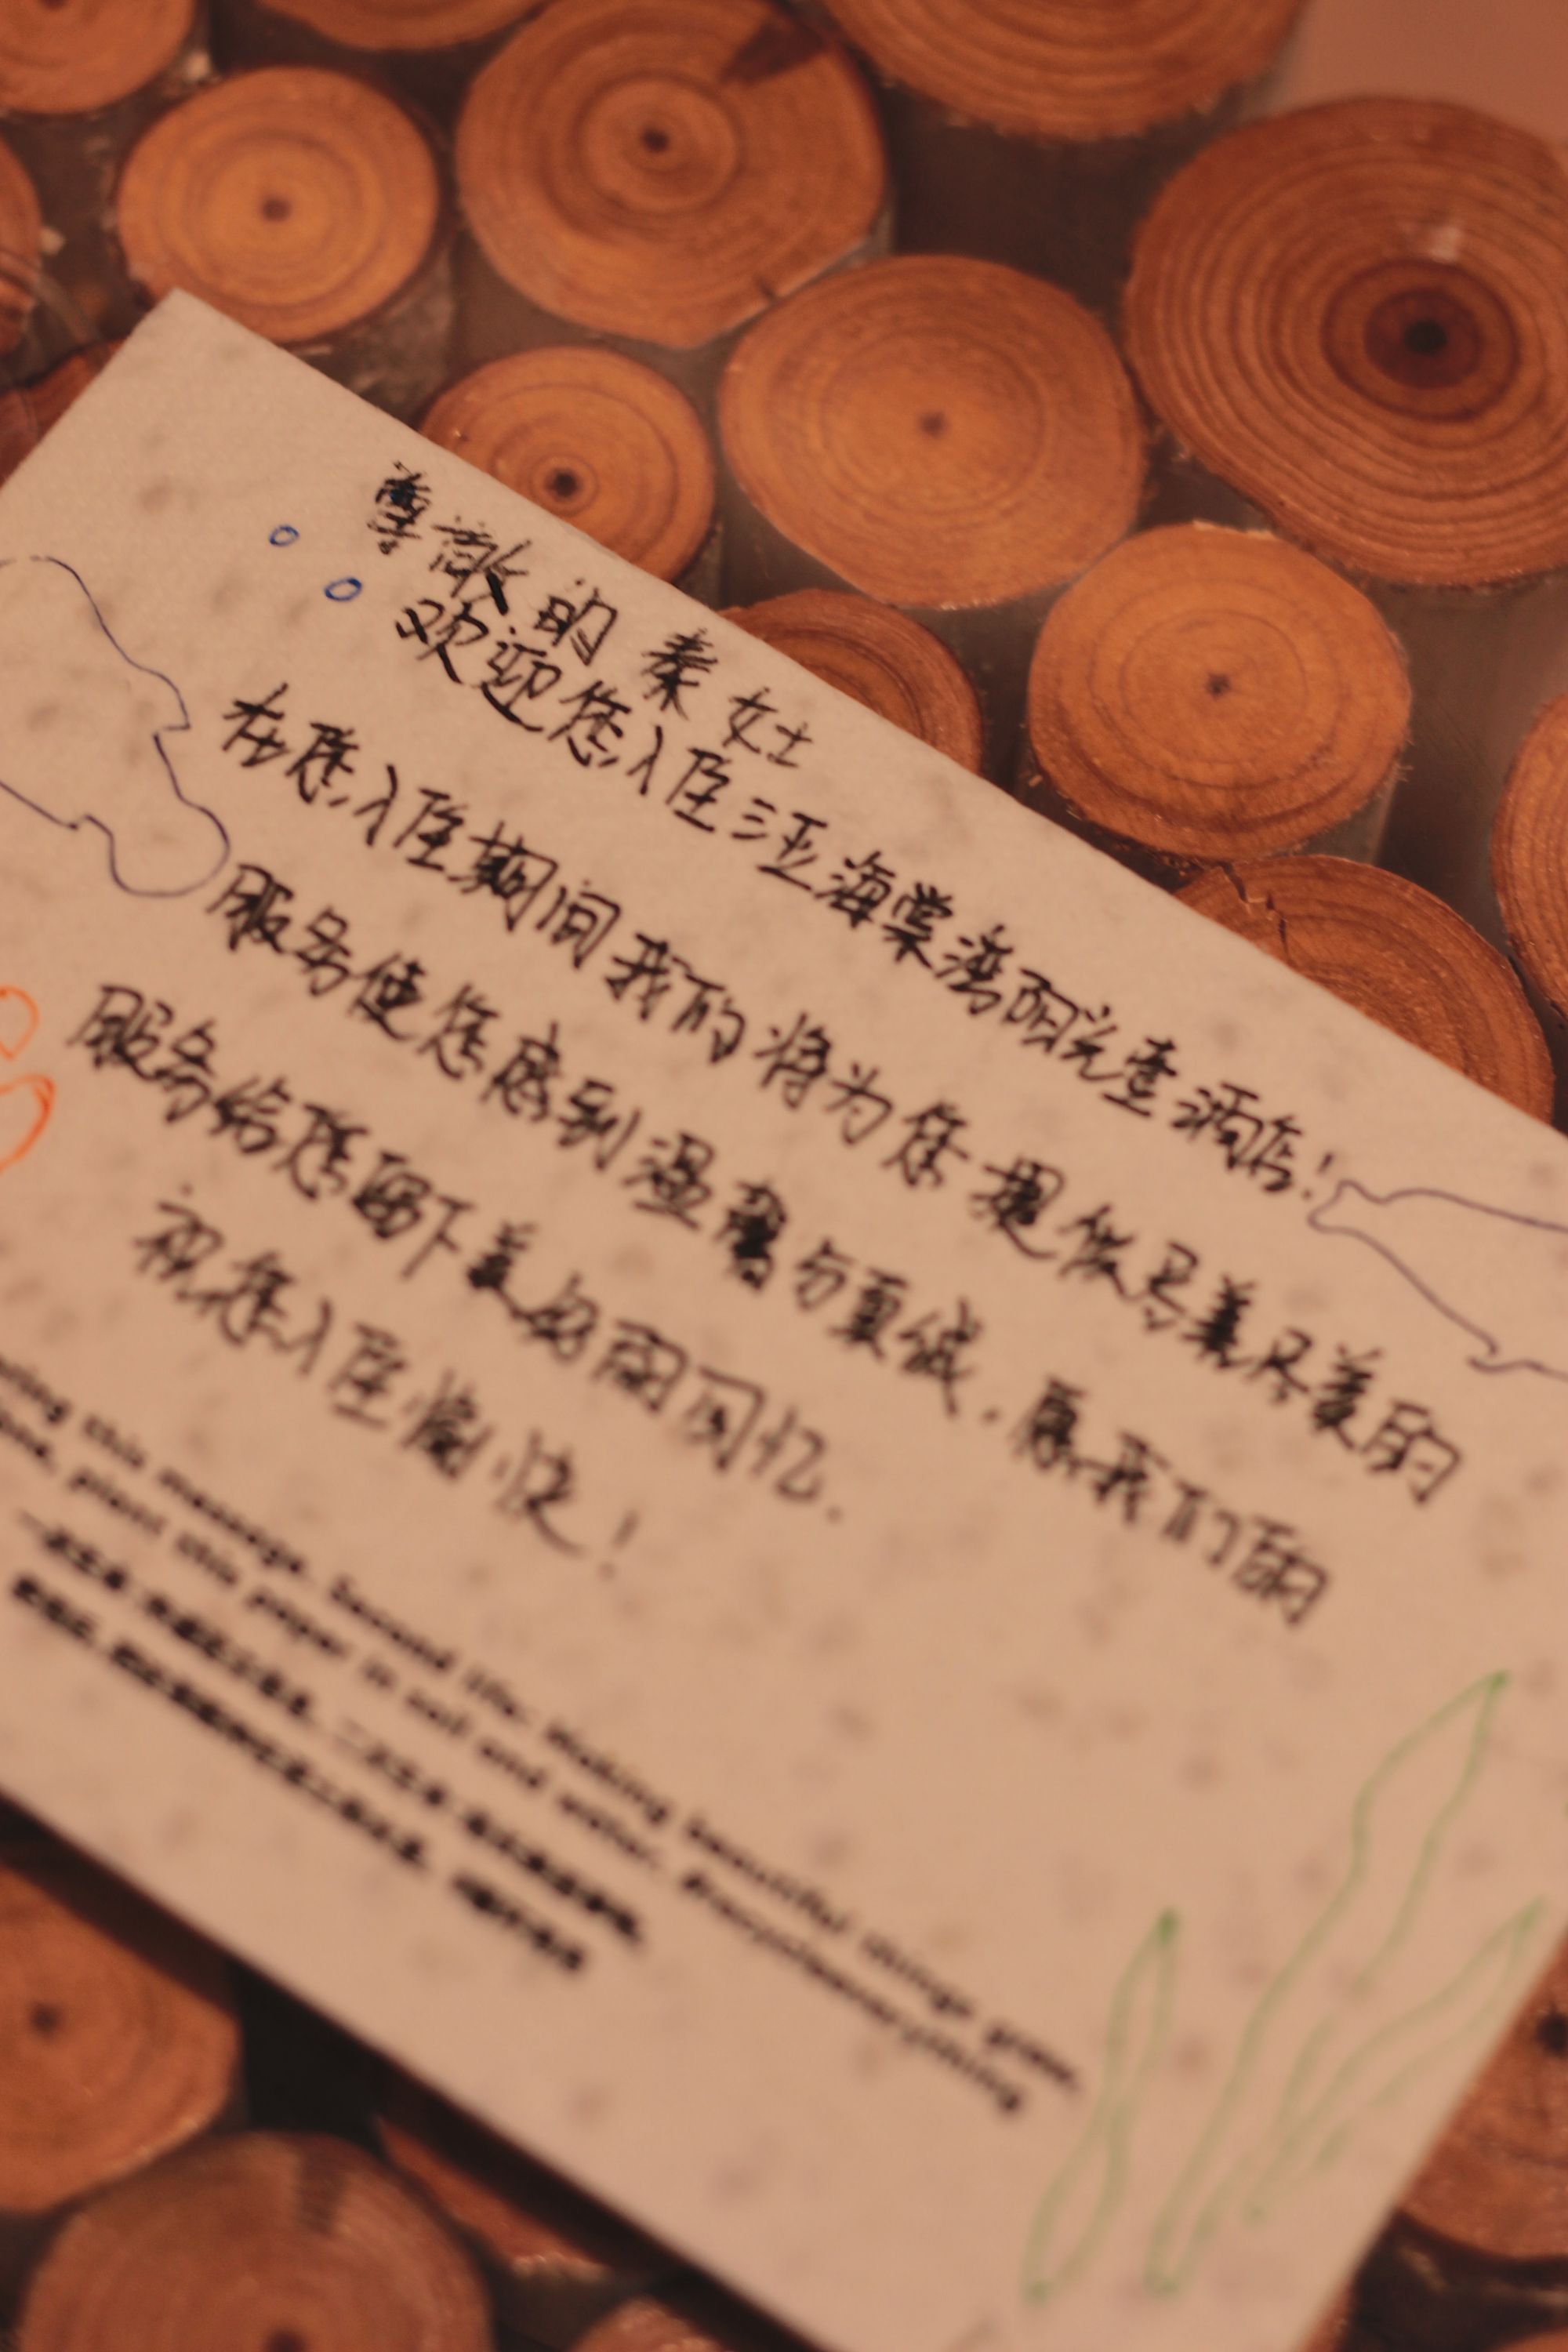 尊敬的 秦 女士
欢迎您入住三亚海棠湾阳光壹酒店！
在您入住期间我们将为您提供尽善尽美的
服务使您感到温馨与真诚，愿我们的
服务给您留下美好的回忆．
祝您入住愉快！
this message. Second life: Making beautiful things grow.
plant this paper in soil and water. #recycleeverything